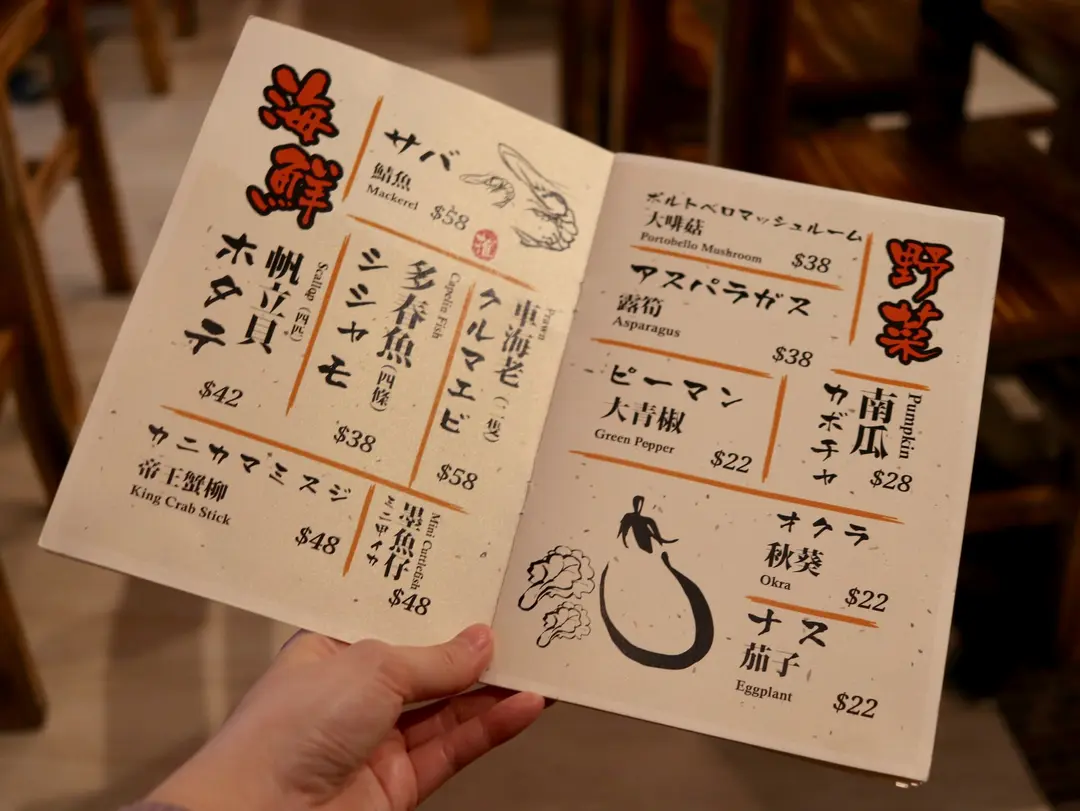 海鮮
サバ
鯖魚
Mackerel
$58
ホタテ
帆立貝(四匹)
Scallop
$42
シシャモ
多春魚(四條)
Capelin Fish
$38
クルマエビ
車海老(二隻)
Prawn
$58
カニカマミスジ
帝王蟹柳
King Crab Stick
$48
ミニ甲イカ
墨魚仔
Mini Cuttlefish
$48
野菜
ポルトベロマッシュルーム
大啡菇
Portobello Mushroom
$38
アスパラガス
露筍
Asparagus
$38
ピーマン
大青椒
Green Pepper
$22
カボチャ
南瓜
Pumpkin
$28
オクラ
秋葵
Okra
$22
ナス
茄子
Eggplant
$22